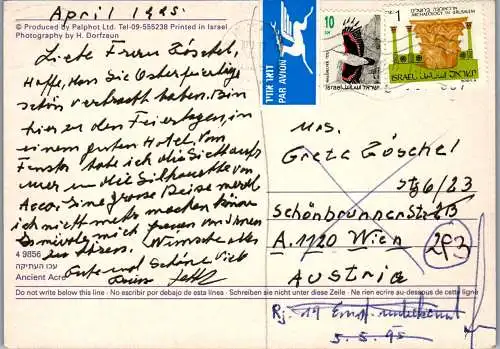 April 1995.
© Produced by Palphot Ltd. Tel-09-555238 Printed in Israel
Photography by H. Dorfzaun
Liebe Frau Zöschel,
Hoffe, Sie Osterfeiertage
schön verbracht haben. Bin
hier zu den Feiertagen, in
einem guten Hotel. Vom
Fenster habe ich die Sicht aufs
Meer und die Silhouette von
Acco. Eine grosse Reise werde
ich nicht mehr machen können
mich freuen von Ihnen
zu hören. Wünsche alles
Gute und Schöne
4 9856
עכו העתיקה
Ancient Acre
Do not write below this line · No escribir por debajo de esta línea · Schreiben sie nicht unter diese Zeile · Ne rien ecrire au-dessous de cette ligne
דואר אויר
PAR AVION
10
Israel
1
ISRAEL
Mrs.
Greta Zöschel
Stg 6/23
Schönbrunnerstr
A. 1120 Wien
293
Austria
Rj. 19 Ernst unbekannt
5.5.95